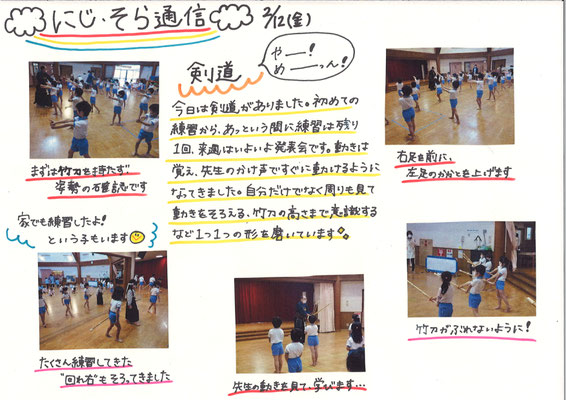 にじ・そら通信 2/12(金)
剣道
やー!
めーーっん!
今日は剣道がありました。初めての
練習から、あっという間に練習は残り
1回、来週はいよいよ発表会です。動きは
覚え、先生のかけ声ですぐに動けるように
なってきました。自分だけでなく周りも見て
動きをそろえる、竹刀の高さまで意識する
など1つ1つの形を磨いています
まずは竹刀を持たず、
姿勢の確認です
右足を前に、
左足のかかとを上げます
家でも練習したよ!
という子もいます
たくさん練習してきた
"回れ右"もそろってきました
先生の動きを見て、学びます…
竹刀がぶれないように!